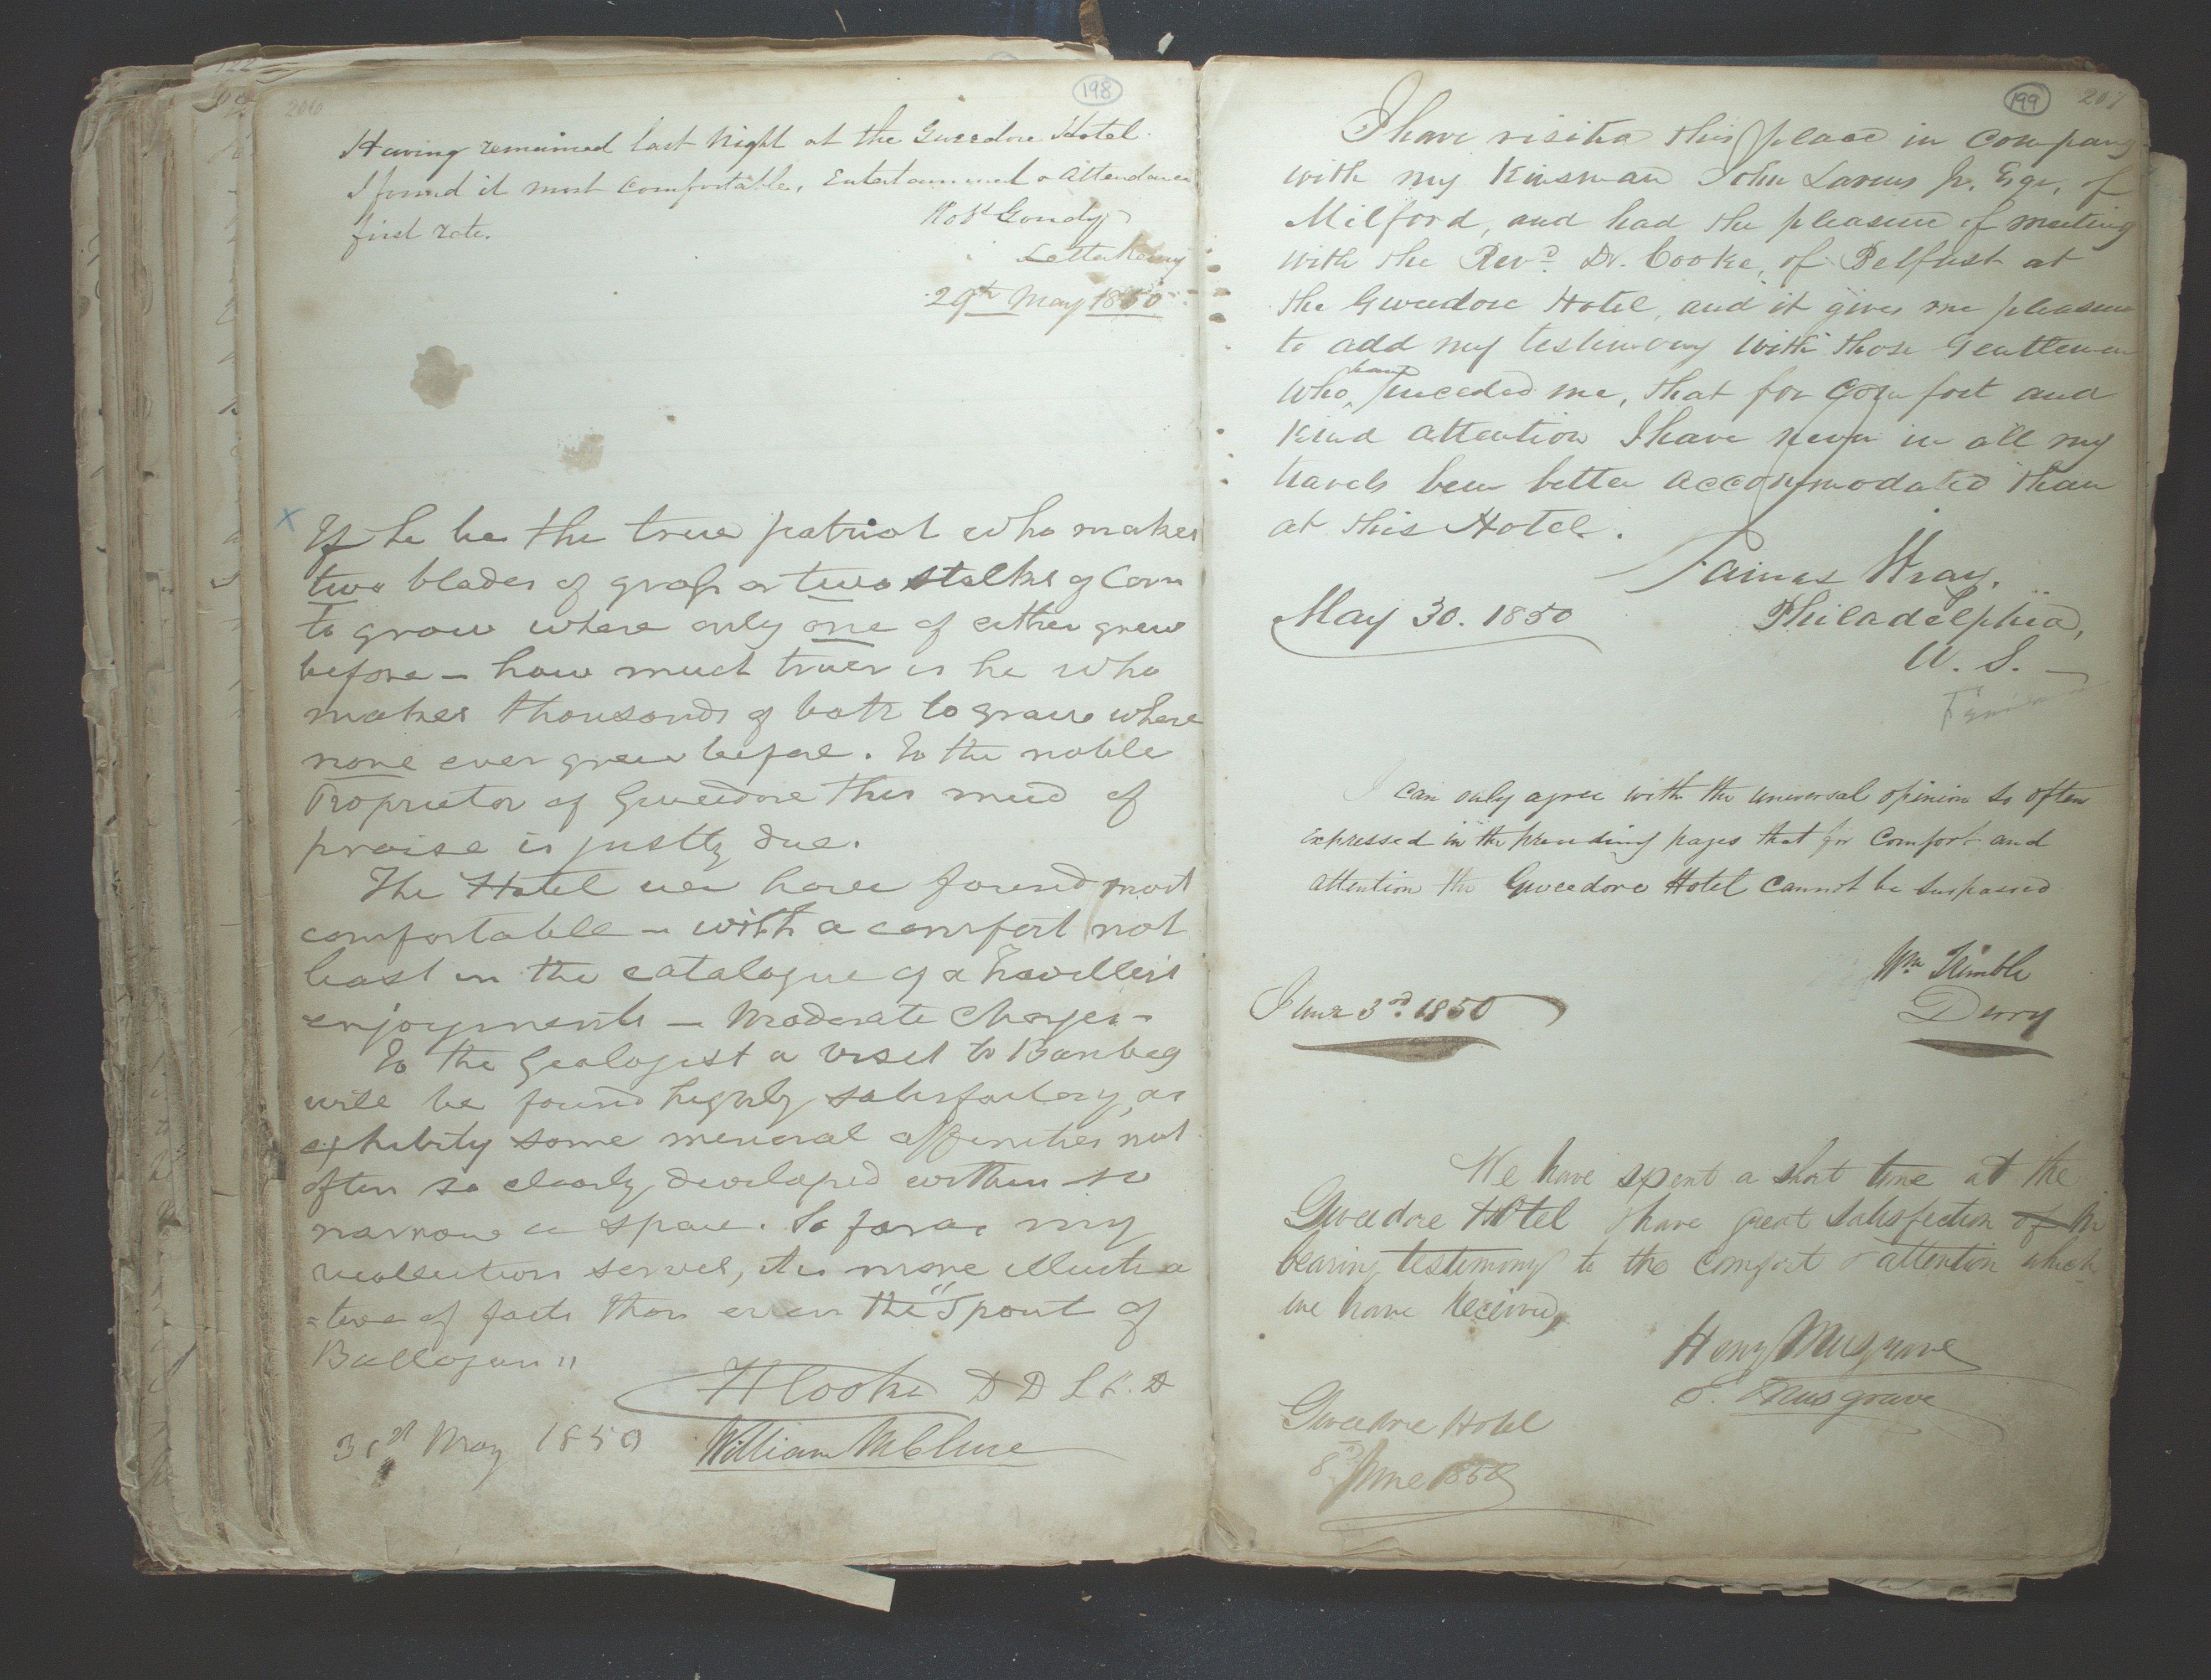 206
198
Having remained last Night at the Gweedore Hotel.
I found it most Comfortable, Entertainment & Attendance
first rate.
Robt Goudy
Letterkenny
29th May 1850
X
If he be the true patriot who makes
two blades of grass or two stalks of Corn
to grow where only one of either grew
before – how much truer is he who
makes thousands of both to grow where
none ever grew before. To the noble
Proprietor of Gweedore this meed of
praise is justly due.
The Hotel we have found most
comfortable – with a comfort not
least in the catalogue of a traveller's
enjoyments – Moderate Charges –
To the Geologist a visit to Bunbeg
will be found highly satisfactory, as
exhibity some mineral affinities not
often so clearly developed within so
narrow a space. So far as my
recollection serves, it is more illustra
=tive of facts than even the "Spout of
Ballogan"
H Cooke D D L L. D
31st May 1850
William McClure
199
207
I have visited this place in Company
with my Kinsman John Jr. Esqr, of
Milford, and had the pleasure of meeting
with the Revd. Dr. Cooke, of Belfast at
the Gweedore Hotel, and it gives me pleasure
to add my testimony with those Gentlemen
who have preceded me, that for Comfort and
kind attention I have never in all my
travels been better accommodated than
at this Hotel.
James Wray.
May 30. 1850
Philadelphia,
U. S. –
I can only agree with the universal opinion so often
expressed in the preceeding pages that for Comfort and
attention the Gweedore Hotel cannot be surpassed
Wm Trimble
June 3rd. 1850
Derry
We have spent a short time at the
Gweedore Hotel & have great satisfaction of in
bearing testimony to the comfort & attention which
we have received,
Henry Musgrave
Musgrave
Gweedore Hotel
8th June 1850